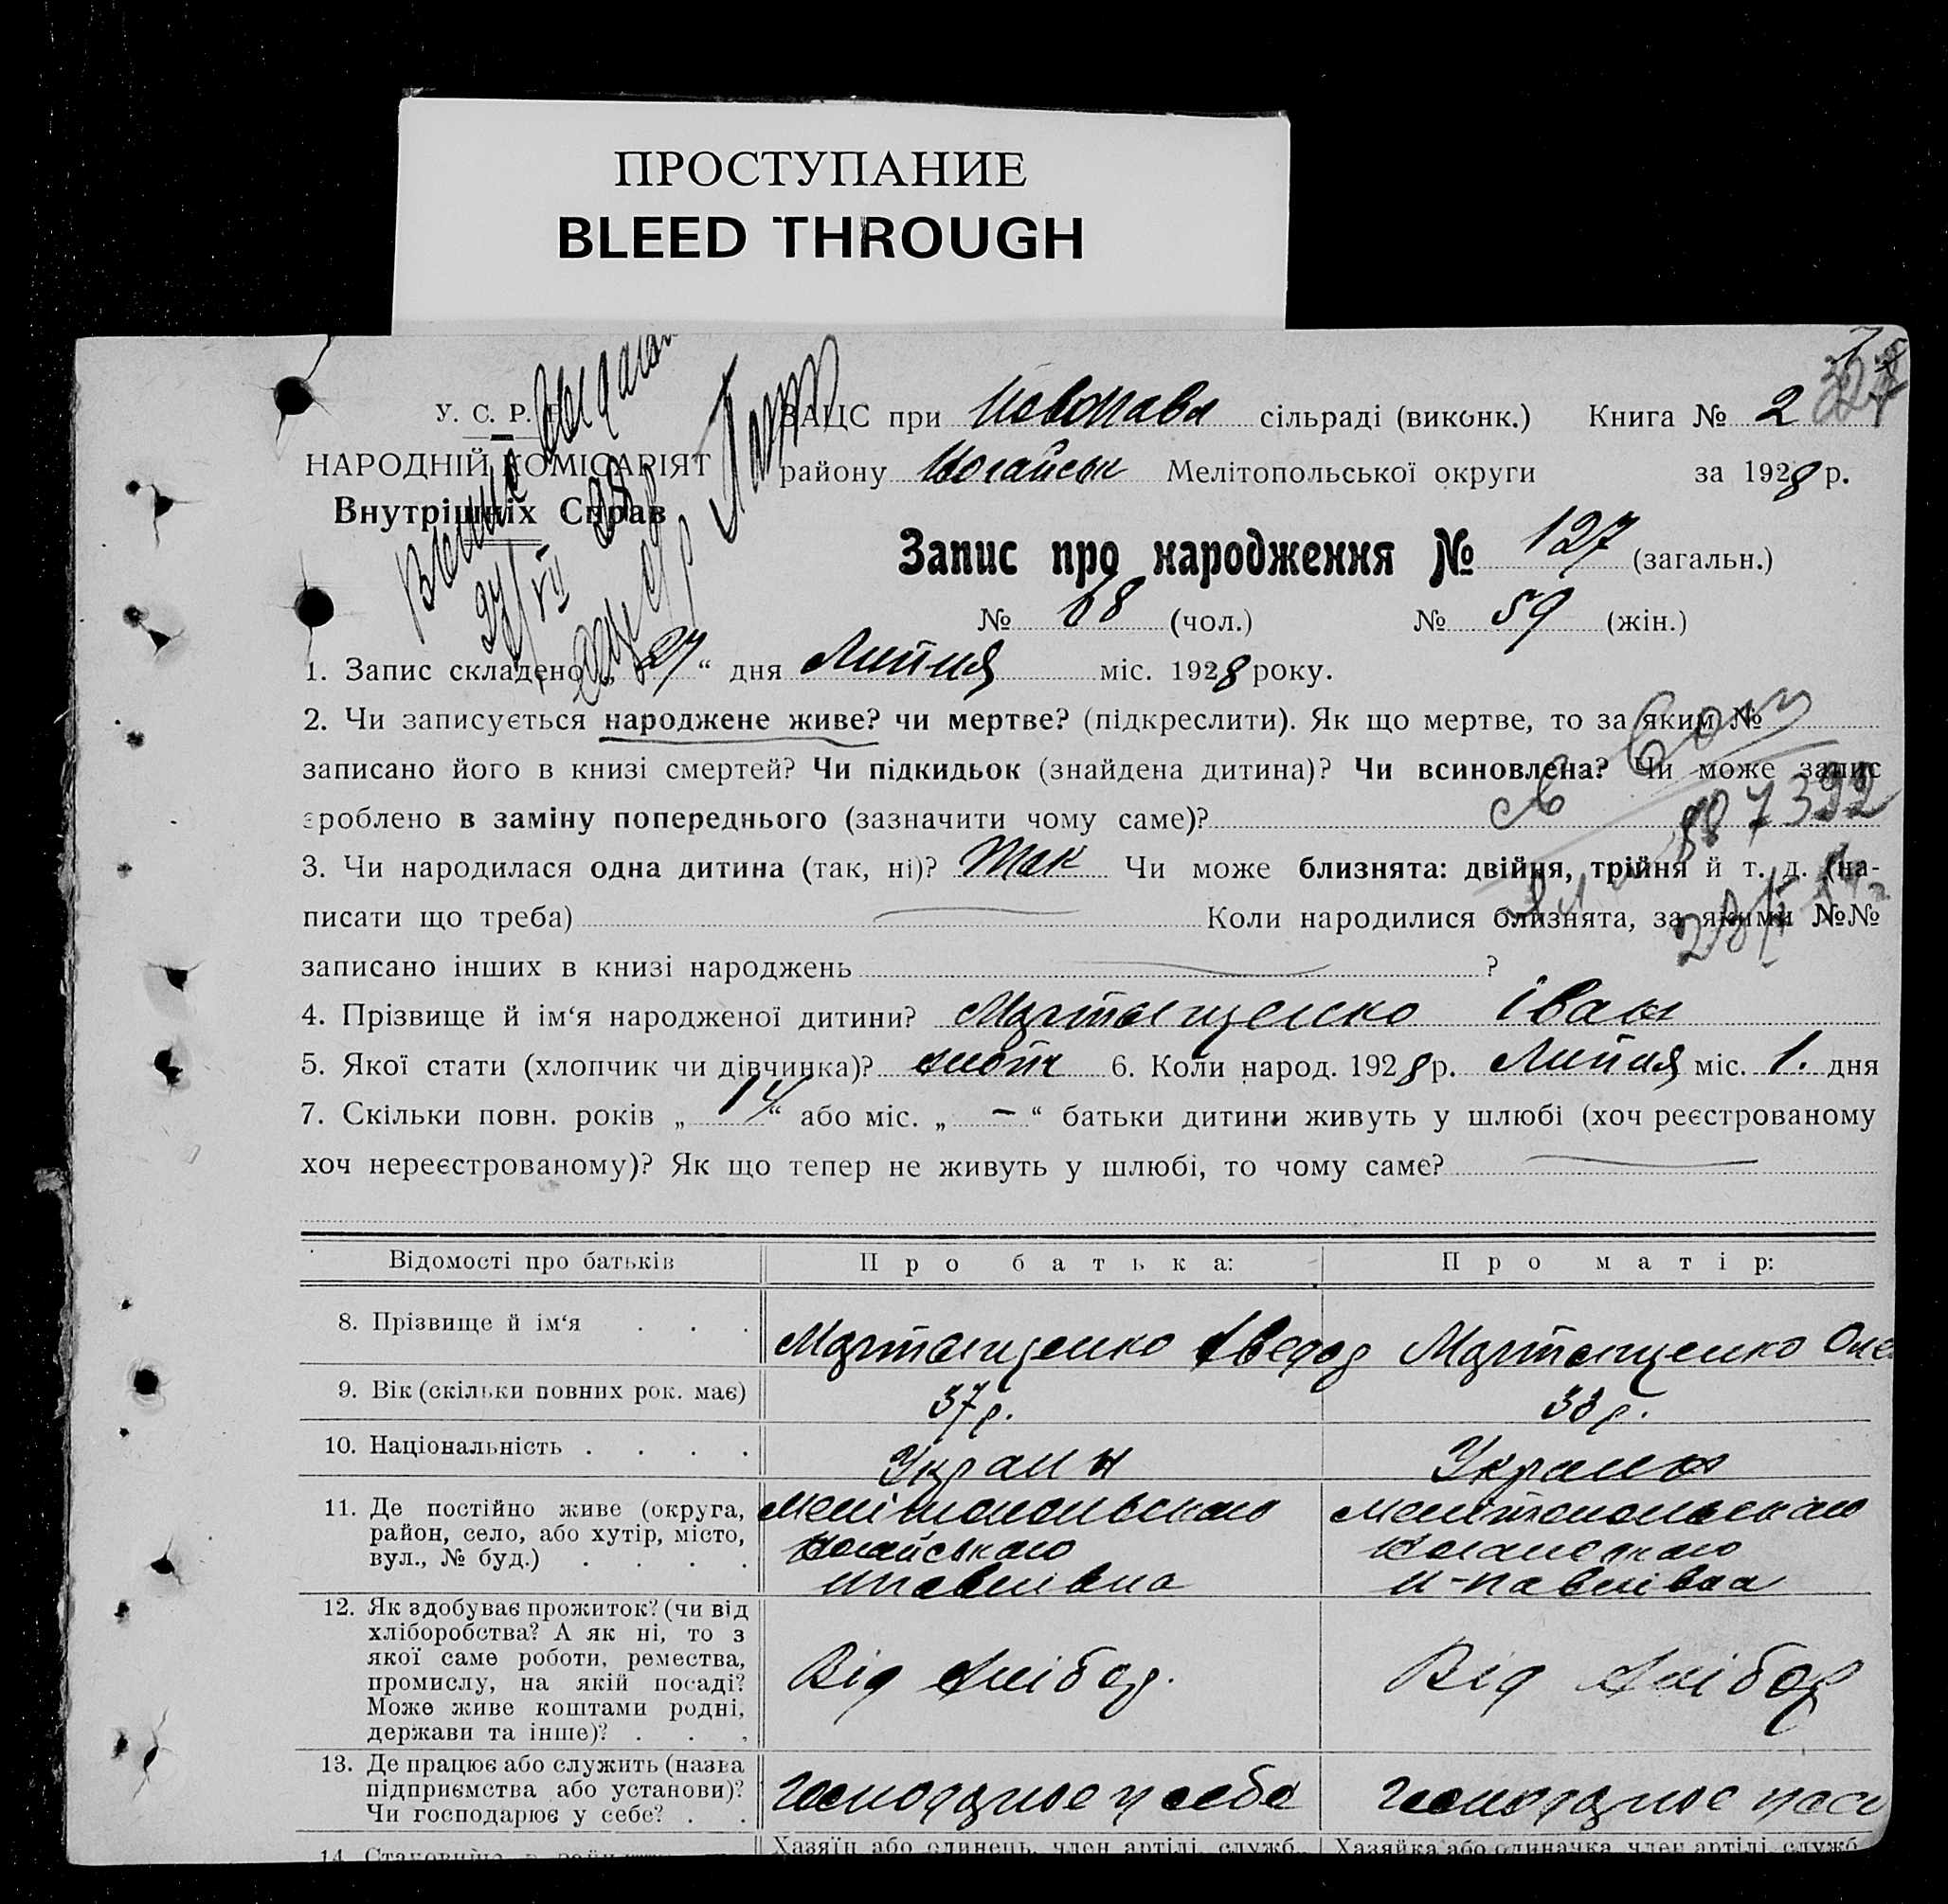 ПРОСТУПАНИЕ
BLEED THROUGH
У. С. Р. Р.
НАРОДНІЙ КОМІСАРІЯТ
Внутрішніх Справ
ЗАЦС при Новопавл сільраді (виконк.) Книга № 2
району Ногайськ Мелітопольської округи за 1928 р.
Запис про народження № 127 (загальн.)
№ 68 (чол.) № 59 (жін.)
1. Запис складено „ 27 “ дня Липня міс. 1928 року.
2. Чи записується народжене живе? чи мертве? (підкреслити). Як що мертве, то за яким №
записано його в книзі смертей? Чи підкидьок (знайдена дитина)? Чи всиновлена? Чи може запис
зроблено в заміну попереднього (зазначити чому саме)?
3. Чи народилася одна дитина (так, ні)? Так Чи може близнята: двійня, трійня й т. д. (на-
писати що треба) Коли народилися близнята, за якими №№
записано інших в книзі народжень ?
4. Прізвище й ім‘я народженої дитини? Мартащенко Іван
5. Якої стати (хлопчик чи дівчинка)? хлопч 6. Коли народ. 1928 р. Липня міс. 1. дня
7. Скільки повн. років „ 14 “ або міс. „ — “ батьки дитини живуть у шлюбі (хоч реєстрованому
хоч нереєстрованому)? Як що тепер не живуть у шлюбі, то чому саме?
Відомості про батьків Про батька: Про матір:
8. Прізвище й ім‘я . . . Мартащенко Хведор Мартащенко Оле
9. Вік (скільки повних рок. має) 37 р. 33 р.
10. Національність . . . . Украин Украин
11. Де постійно живе (округа, Мелітопольскаго Мелітопольскаго
район, село, або хутір, місто, Ногайськаго Ногайскаго
вул., № буд.) . . . . Нпавлівна Н-павлівна
12. Як здобуває прожиток? (чи від
хліборобства? А як ні, то з
якої саме роботи, ремества, Від хлібор. Від хлібор
промислу, на якій посаді?
Може живе коштами родні,
держави та інше)? . . .
13. Де працює або служить (назва
підприємства або установи)? господарює у себе господарює у себ
Чи господарює у себе? . .
Хазяїн або одинець, член артілі, служб. Хазяйка або одиначка, член артілі, служб.